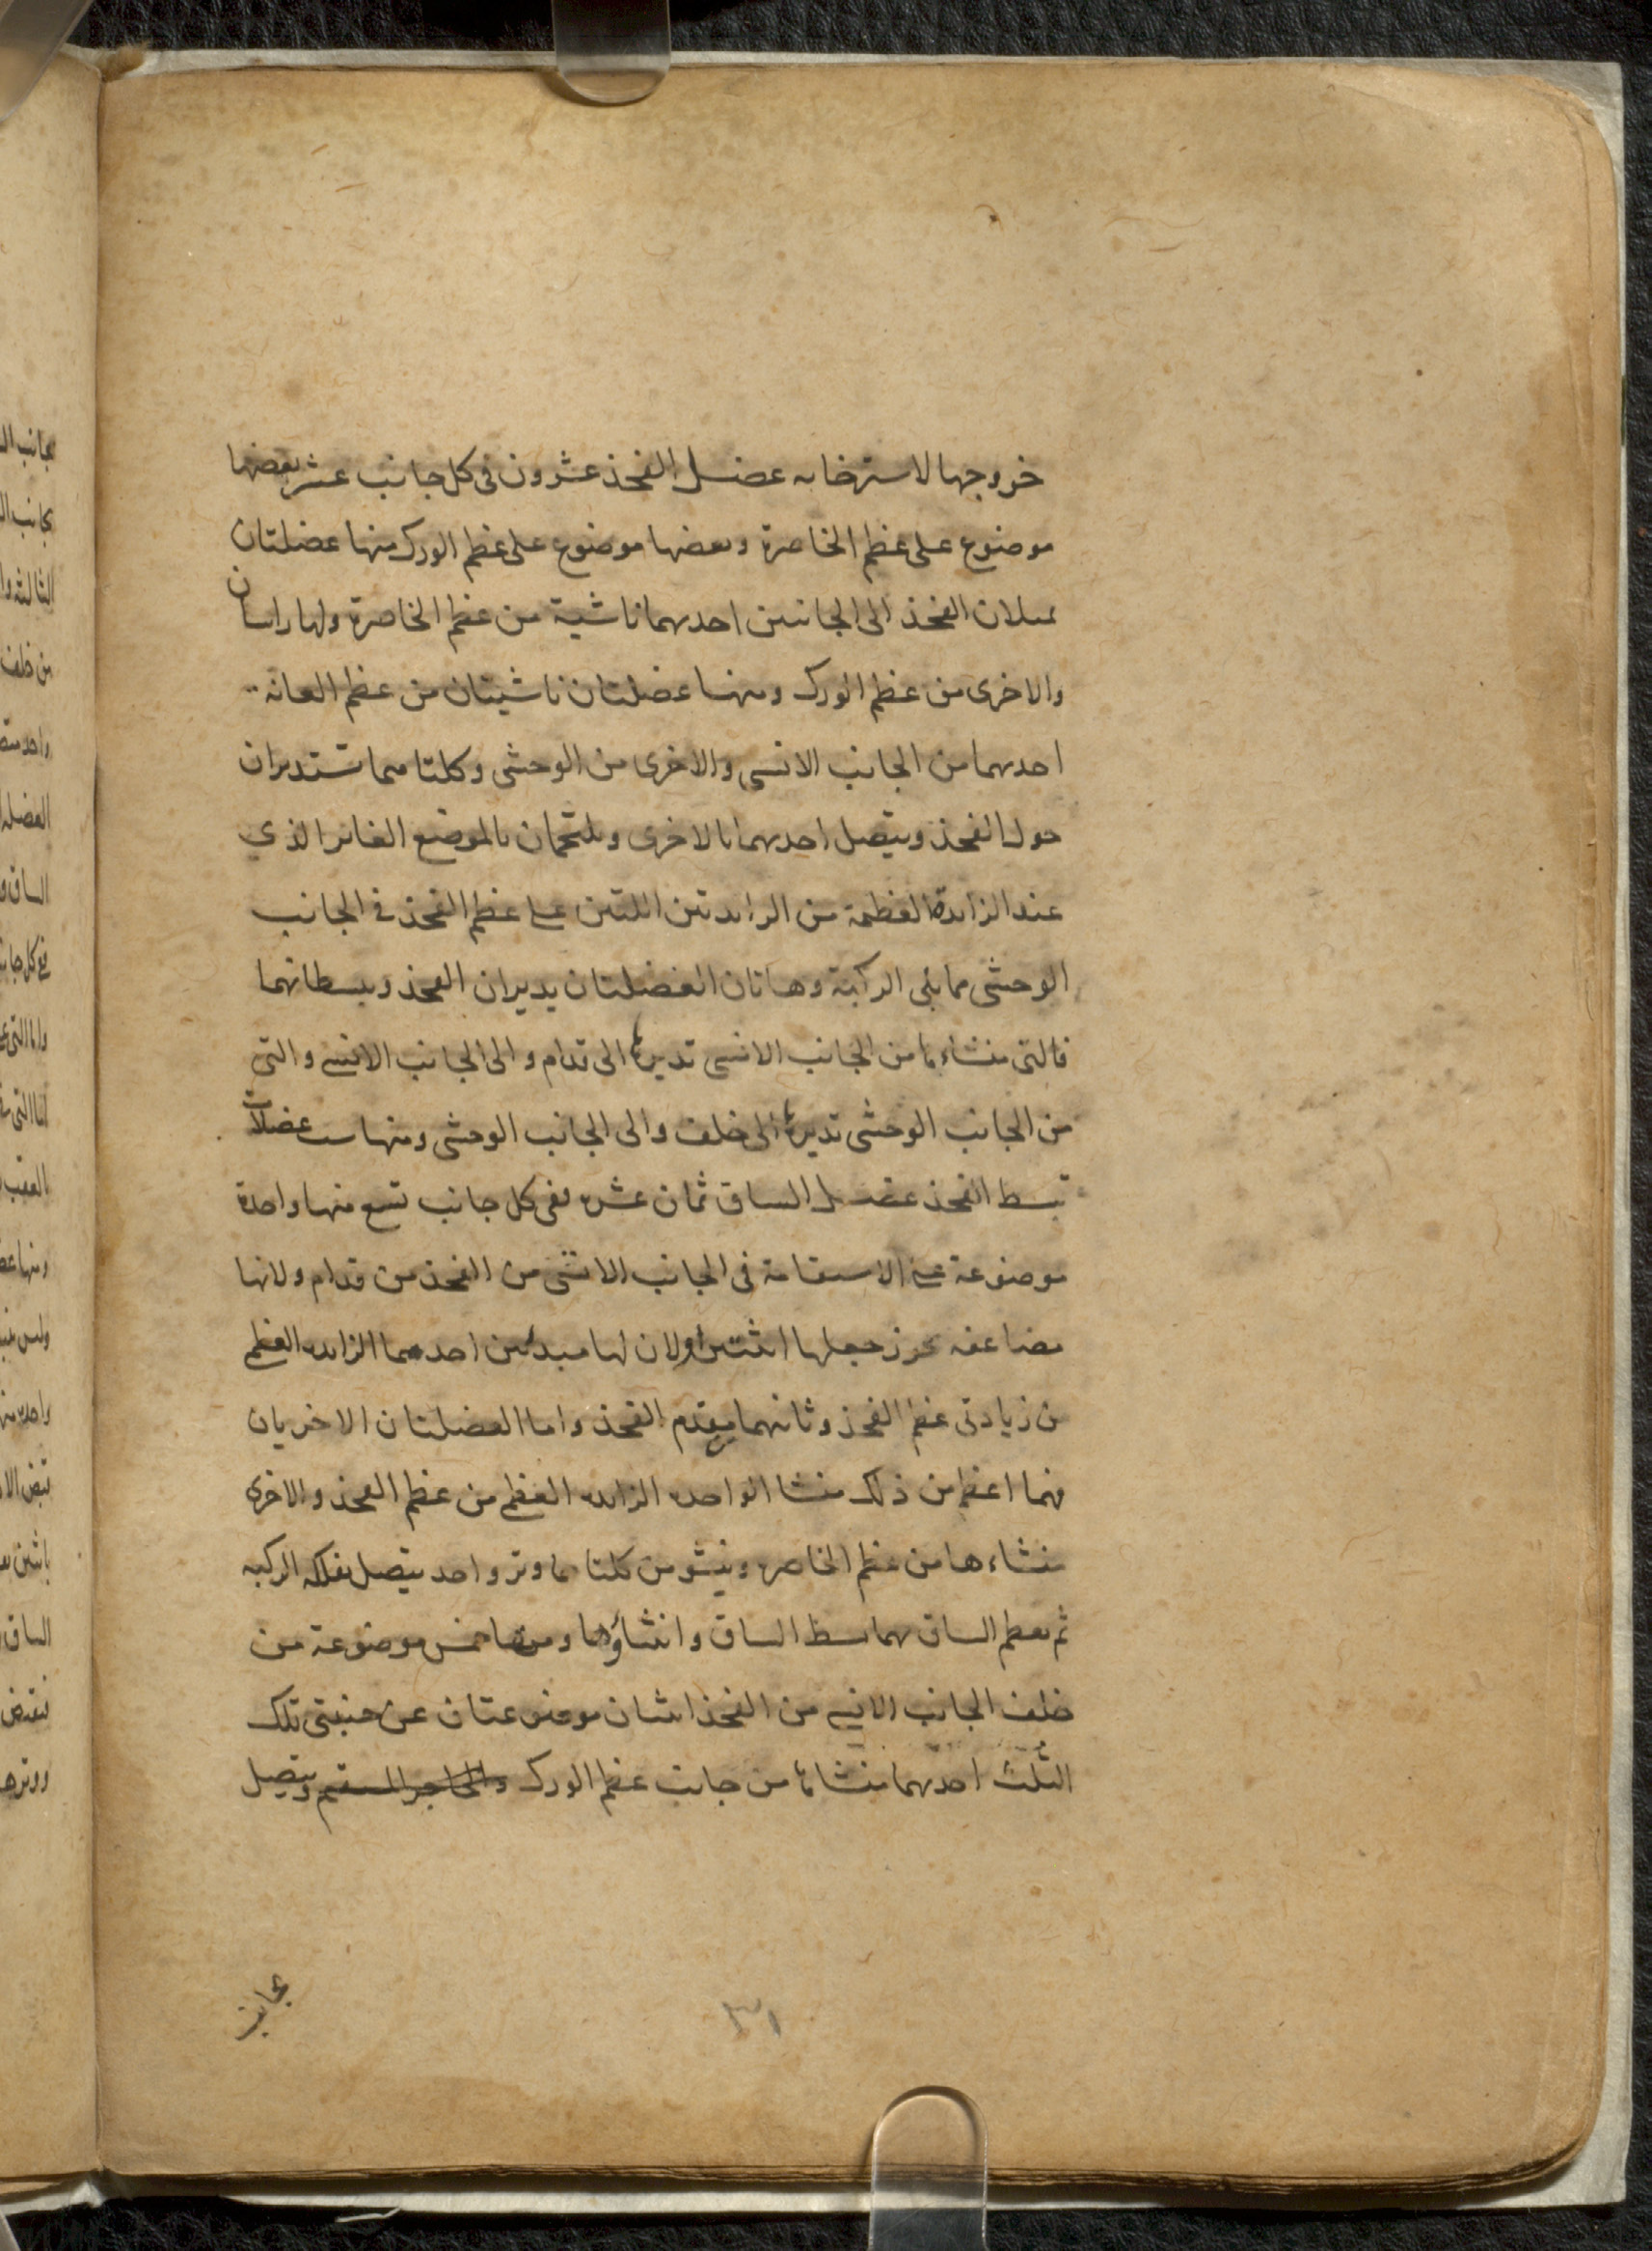 خروجها لاسترخائه عضل الفخذ عشرون فى كل جانب عشر بعضها
موضوع على عظم الخاصرة وبعضها موضوع على عظم الورك منها عضلتان
تميلان الفخذ الى الجانبين احدهما ناشية من عظم الخاصرة ولها راسان
والاخرى من عظم الورك ومنها عضلتان ناشيتان من عظم العانه
احدهما من الجانب الانسى والاخرى من الوحشى وكلتاهما تستديران
حول الفخذ ويتصل احدهما بالاخرى ويلتحمان بالموضع الغائر الذي
عند الزايدة العظيمة من الزايدتين اللتين على عظم الفخذ فى الجانب
الوحشى مما يلى الركبة وهاتان العضلتان يديران الفخذ ويبسطانهما
فالتى منشاءها من الجانب الانسى تديرها الى قدام والى الجانب الانسى والتى
من الجانب الوحشى تديرها الى خلف والى الجانب الوحشى ومنها ست عضلات
تبسط الفخذ عضل الساق ثمان عشره ففى كل جانب تسع منها واحدة
موضوعة على الاستقامة فى الجانب الانسى من الفخذ من قدام ولانها
مضاعفه يجوز جعلها اثنتين اولان لها مبدئين احدهما الزايده العظمى
من زيادتى عظم الفخذ وثانيهما مقدم الفخذ واما العضلتان الاخريان
فهما اعظم من ذلك منشا الواحده الزايده العظمى من عظم الفخذ والاخرى
منشاءها من عظم الخاصره وينشو من كلتاهما وتر واحد يتصل بفلكه الركبه
ثم بعظم الساق بهما بسط الساق وانثناؤها ومنها خمس موضوعة من
خلف الجانب الانسى من الفخذ اثنان موضوعتان عن جنبتى تلك
الثلث احدهما منشاها من جانب عظم الورك والحاجز المستقيم ويتصل
بجانب
٣١